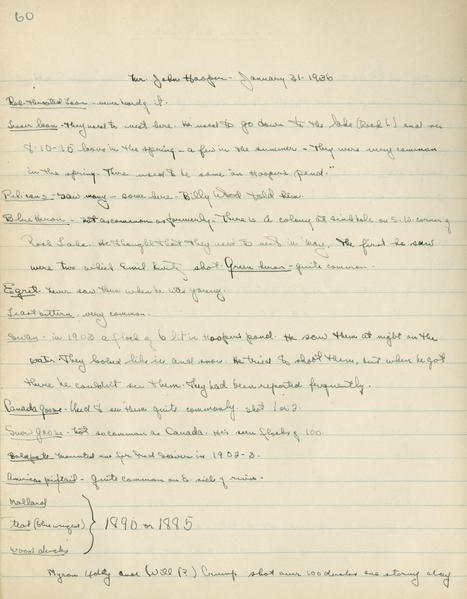 60
Mr. John Hooper - January 31. 1936
Red-throated Loon - never heard of it.
Lesser loon - They used to nest here. He used to go down to the lake (Reed L) and see
8-10-15 loons in the spring - a few in the summer - They were very common
in the spring. There used to be some on Hoopers pond."
Pelicans - saw many - some here. Billy Wood told him.
Blue Heron - not as common as formerly. There is a colony at sink hole on S.W. corner of
Lake. He thought that they used to nest in May. The first he saw
were two which Emil shot. Green heron - quite common.
Egret. Never saw them when he was young.
Least bittern - very common.
Swan - in 1903 a flock of 6 lit in Hooper's pond. He saw them at night on the
water. They looked like ice and snow. He tried to shoot them, but when he got
there he couldn't see them. They had been reported frequently.
Canada goose - Used to see them quite commonly. Shot 1 or 2.
Snow goose - not so common as Canada. Has seen flocks of 100.
Baldpate mounted one for Fred in 1902-3.
American pintail - quite common on E. side of river.
Mallard
Teal (blue winged) 1890 or 1885
Wood ducks
Myron and (Will B?) Crump shot over 100 ducks one stormy day